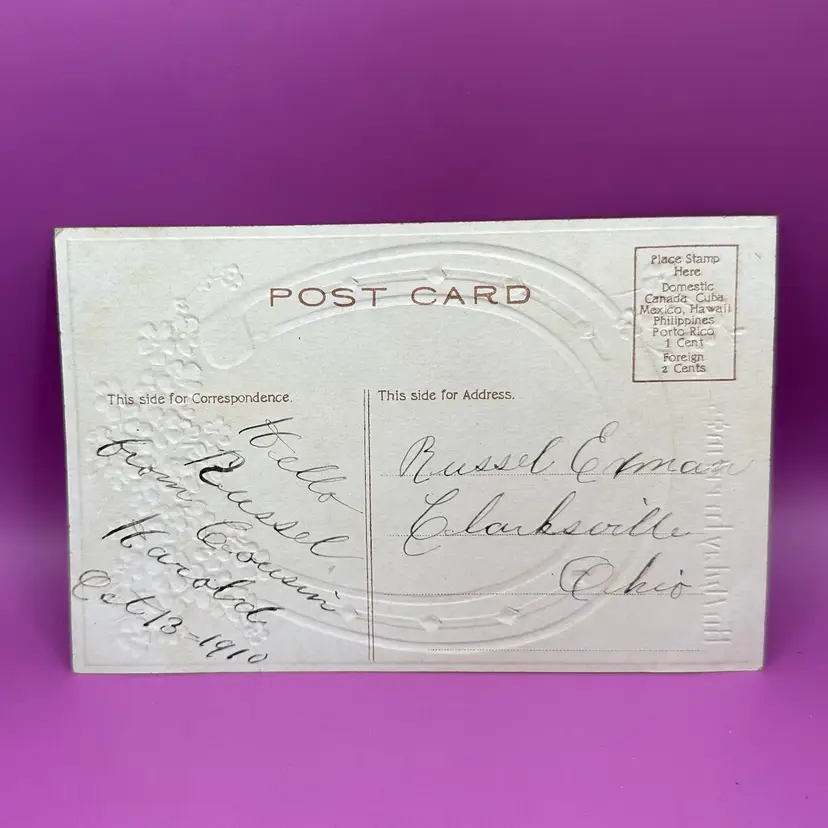 POST CARD
Place Stamp
Here
Domestic
Canada, Cuba
Mexico, Hawaii
Philippines
Porto Rico
1 Cent
Foreign
2 Cents
This side for Correspondence.
Hello
Russel
from Cousin
Harold
Oct 13-1910
This side for Address.
Russel Exman
Clarksville
Ohio